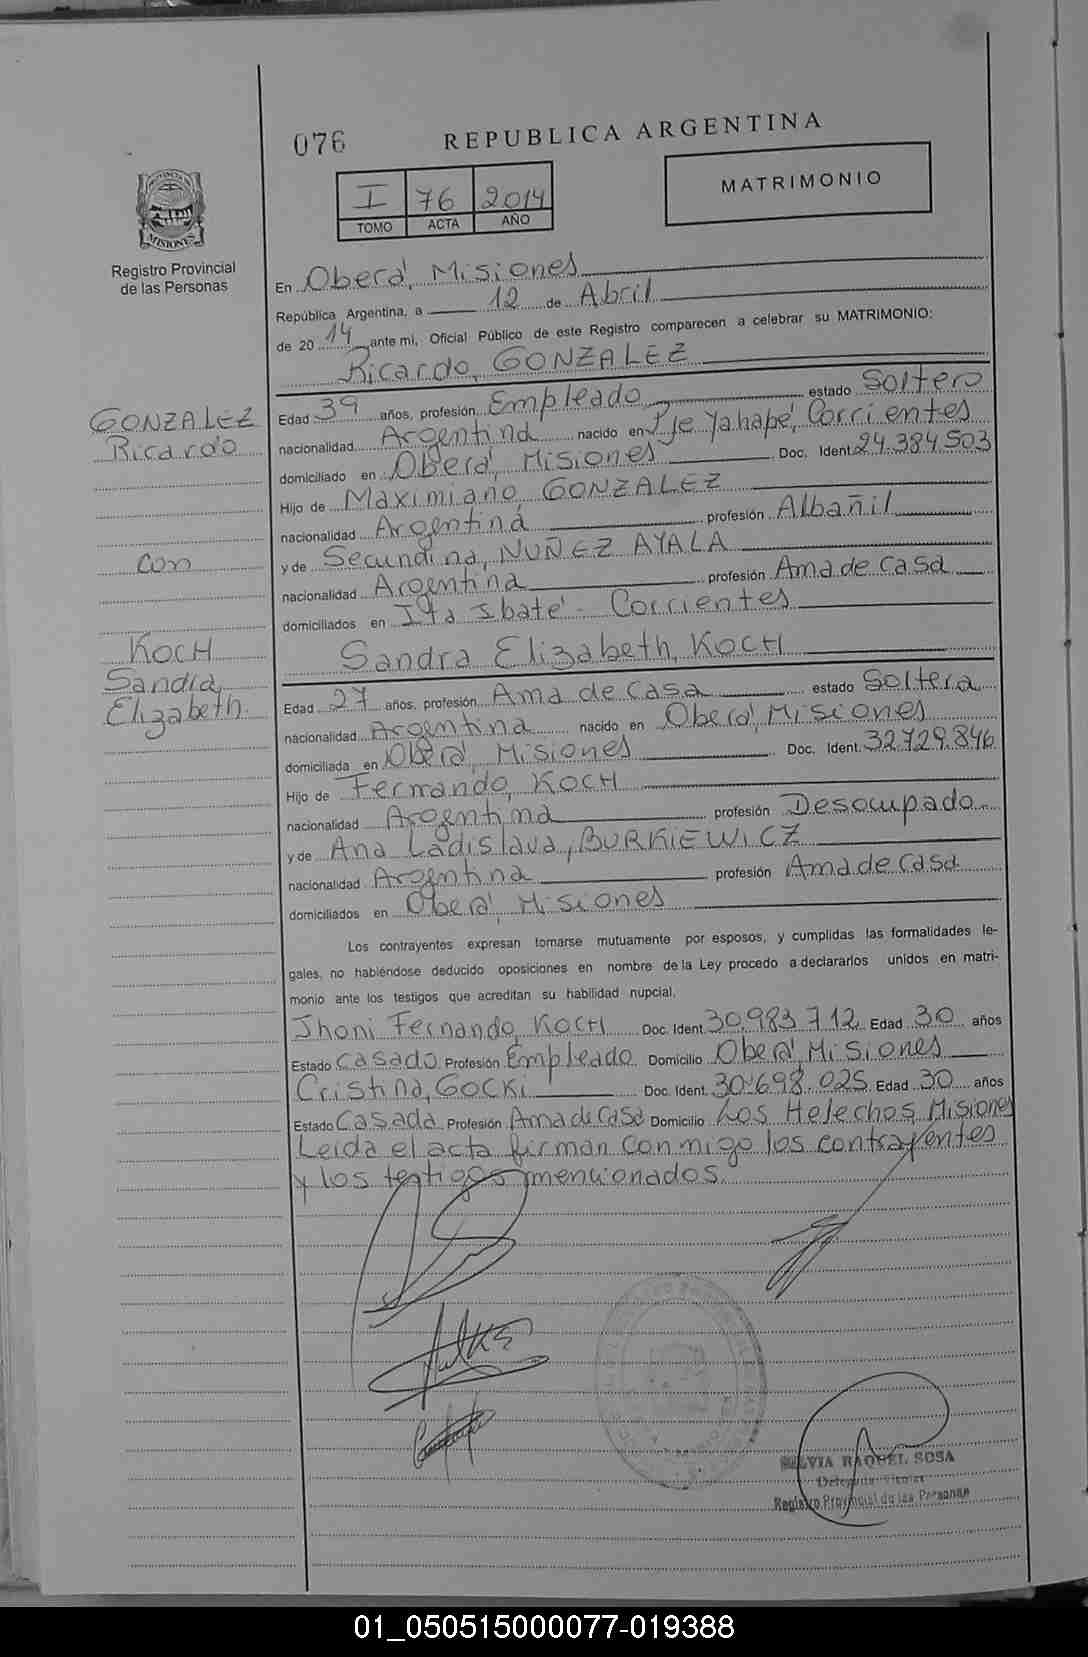 076
REPUBLICA ARGENTINA
I 76 2014
TOMO ACTA AÑO
MATRIMONIO
PROVINCIA DE
MISIONES
Registro Provincial
de las Personas
En Oberá, Misiones
República Argentina, a 12 de Abril
de 20 14 ante mi, Oficial Público de este Registro comparecen a celebrar su MATRIMONIO:
Ricardo, GONZALEZ
GONZALEZ
Ricardo
con
KOCH
Sandra,
Elizabeth
Edad 39 años, profesión Empleado estado Soltero
nacionalidad Argentina nacido en Pje Yahapé, Corrientes
domiciliado en Oberá, Misiones Doc. Ident. 24.384.503
Hijo de Maximiano GONZALEZ
nacionalidad Argentina profesión Albañil
y de Secundina, NUÑEZ AYALA
nacionalidad Argentina profesión Ama de casa
domiciliados en Ita Ibaté - Corrientes
Sandra Elizabeth, KOCH
Edad 27 años, profesión Ama de casa estado Soltera
nacionalidad Argentina nacido en Oberá, Misiones
domiciliada en Oberá, Misiones Doc. Ident. 32.729.846
Hijo de Fernando, KOCH
nacionalidad Argentina profesión Desocupado
y de Ana Ladislava, BURKIEWICZ
nacionalidad Argentina profesión Ama de casa
domiciliados en Oberá, Misiones
Los contrayentes expresan tomarse mutuamente por esposos, y cumplidas las formalidades le-
gales, no habiéndose deducido oposiciones en nombre de la Ley procedo a declararlos unidos en matri-
monio ante los testigos que acreditan su habilidad nupcial.
Jhoni Fernando, KOCH Doc. Ident. 30.983.712 Edad 30 años
Estado Casado Profesión Empleado Domicilio Oberá, Misiones
Cristina, GOCKI Doc. Ident. 30.698.025 Edad 30 años
Estado Casada Profesión Ama de casa Domicilio Los Helechos, Misiones
Leida el acta firman conmigo los contrayentes
y los testigos mencionados.
SILVIA RAQUEL SOSA
Delegada Titular
Registro Provincial de las Personas
01_050515000077-019388